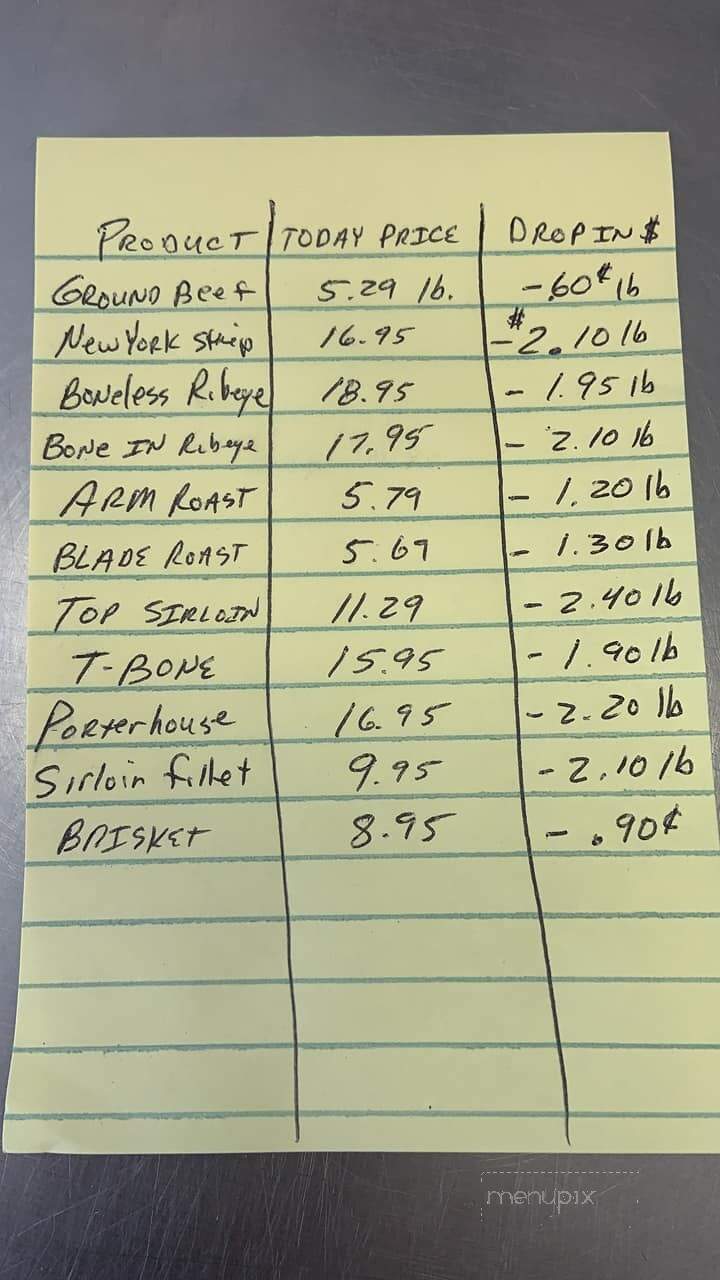 PRODUCT TODAY PRICE DROP IN $
GROUND BEEF 5.29 lb. -.60¢ lb
NEW YORK STRIP 16.95 -$2.10 lb
BONELESS RIBEYE 18.95 - 1.95 lb
BONE IN RIBEYE 17.95 - 2.10 lb
ARM ROAST 5.79 - 1.20 lb
BLADE ROAST 5.69 - 1.30 lb
TOP SIRLOIN 11.29 - 2.40 lb
T-BONE 15.95 - 1.90 lb
Porterhouse 16.95 - 2.20 lb
Sirloin fillet 9.95 - 2.10 lb
BRISKET 8.95 - .90¢
menupix